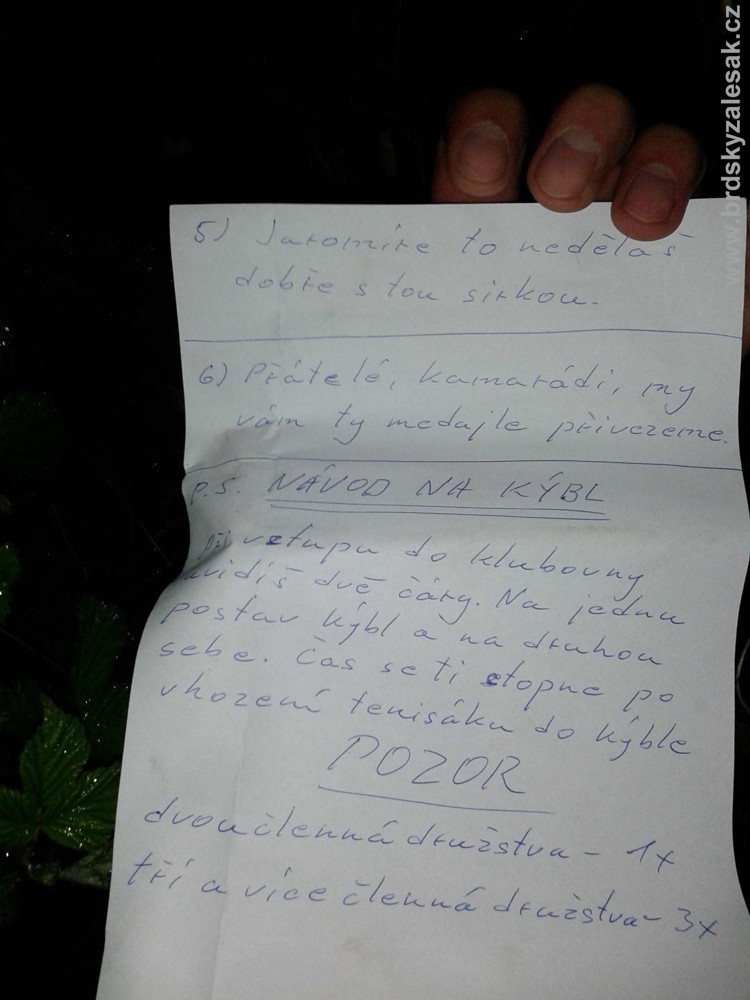 5) Jaromíre to neděláš
dobře s tou sirkou.
6) Přátelé, kamarádi, my
vám ty medajle přivezeme.
P.S. NÁVOD NA KÝBL
při vstupu do klubovny
uvidíš dvě čáry. Na jednu
postav kýbl a na druhou
sebe. Čas se ti stopne po
vhození tenisáku do kýble
POZOR
dvoučlenná družstva - 1x
tří a více členná družstva - 3x
www.brdskyzalesak.cz